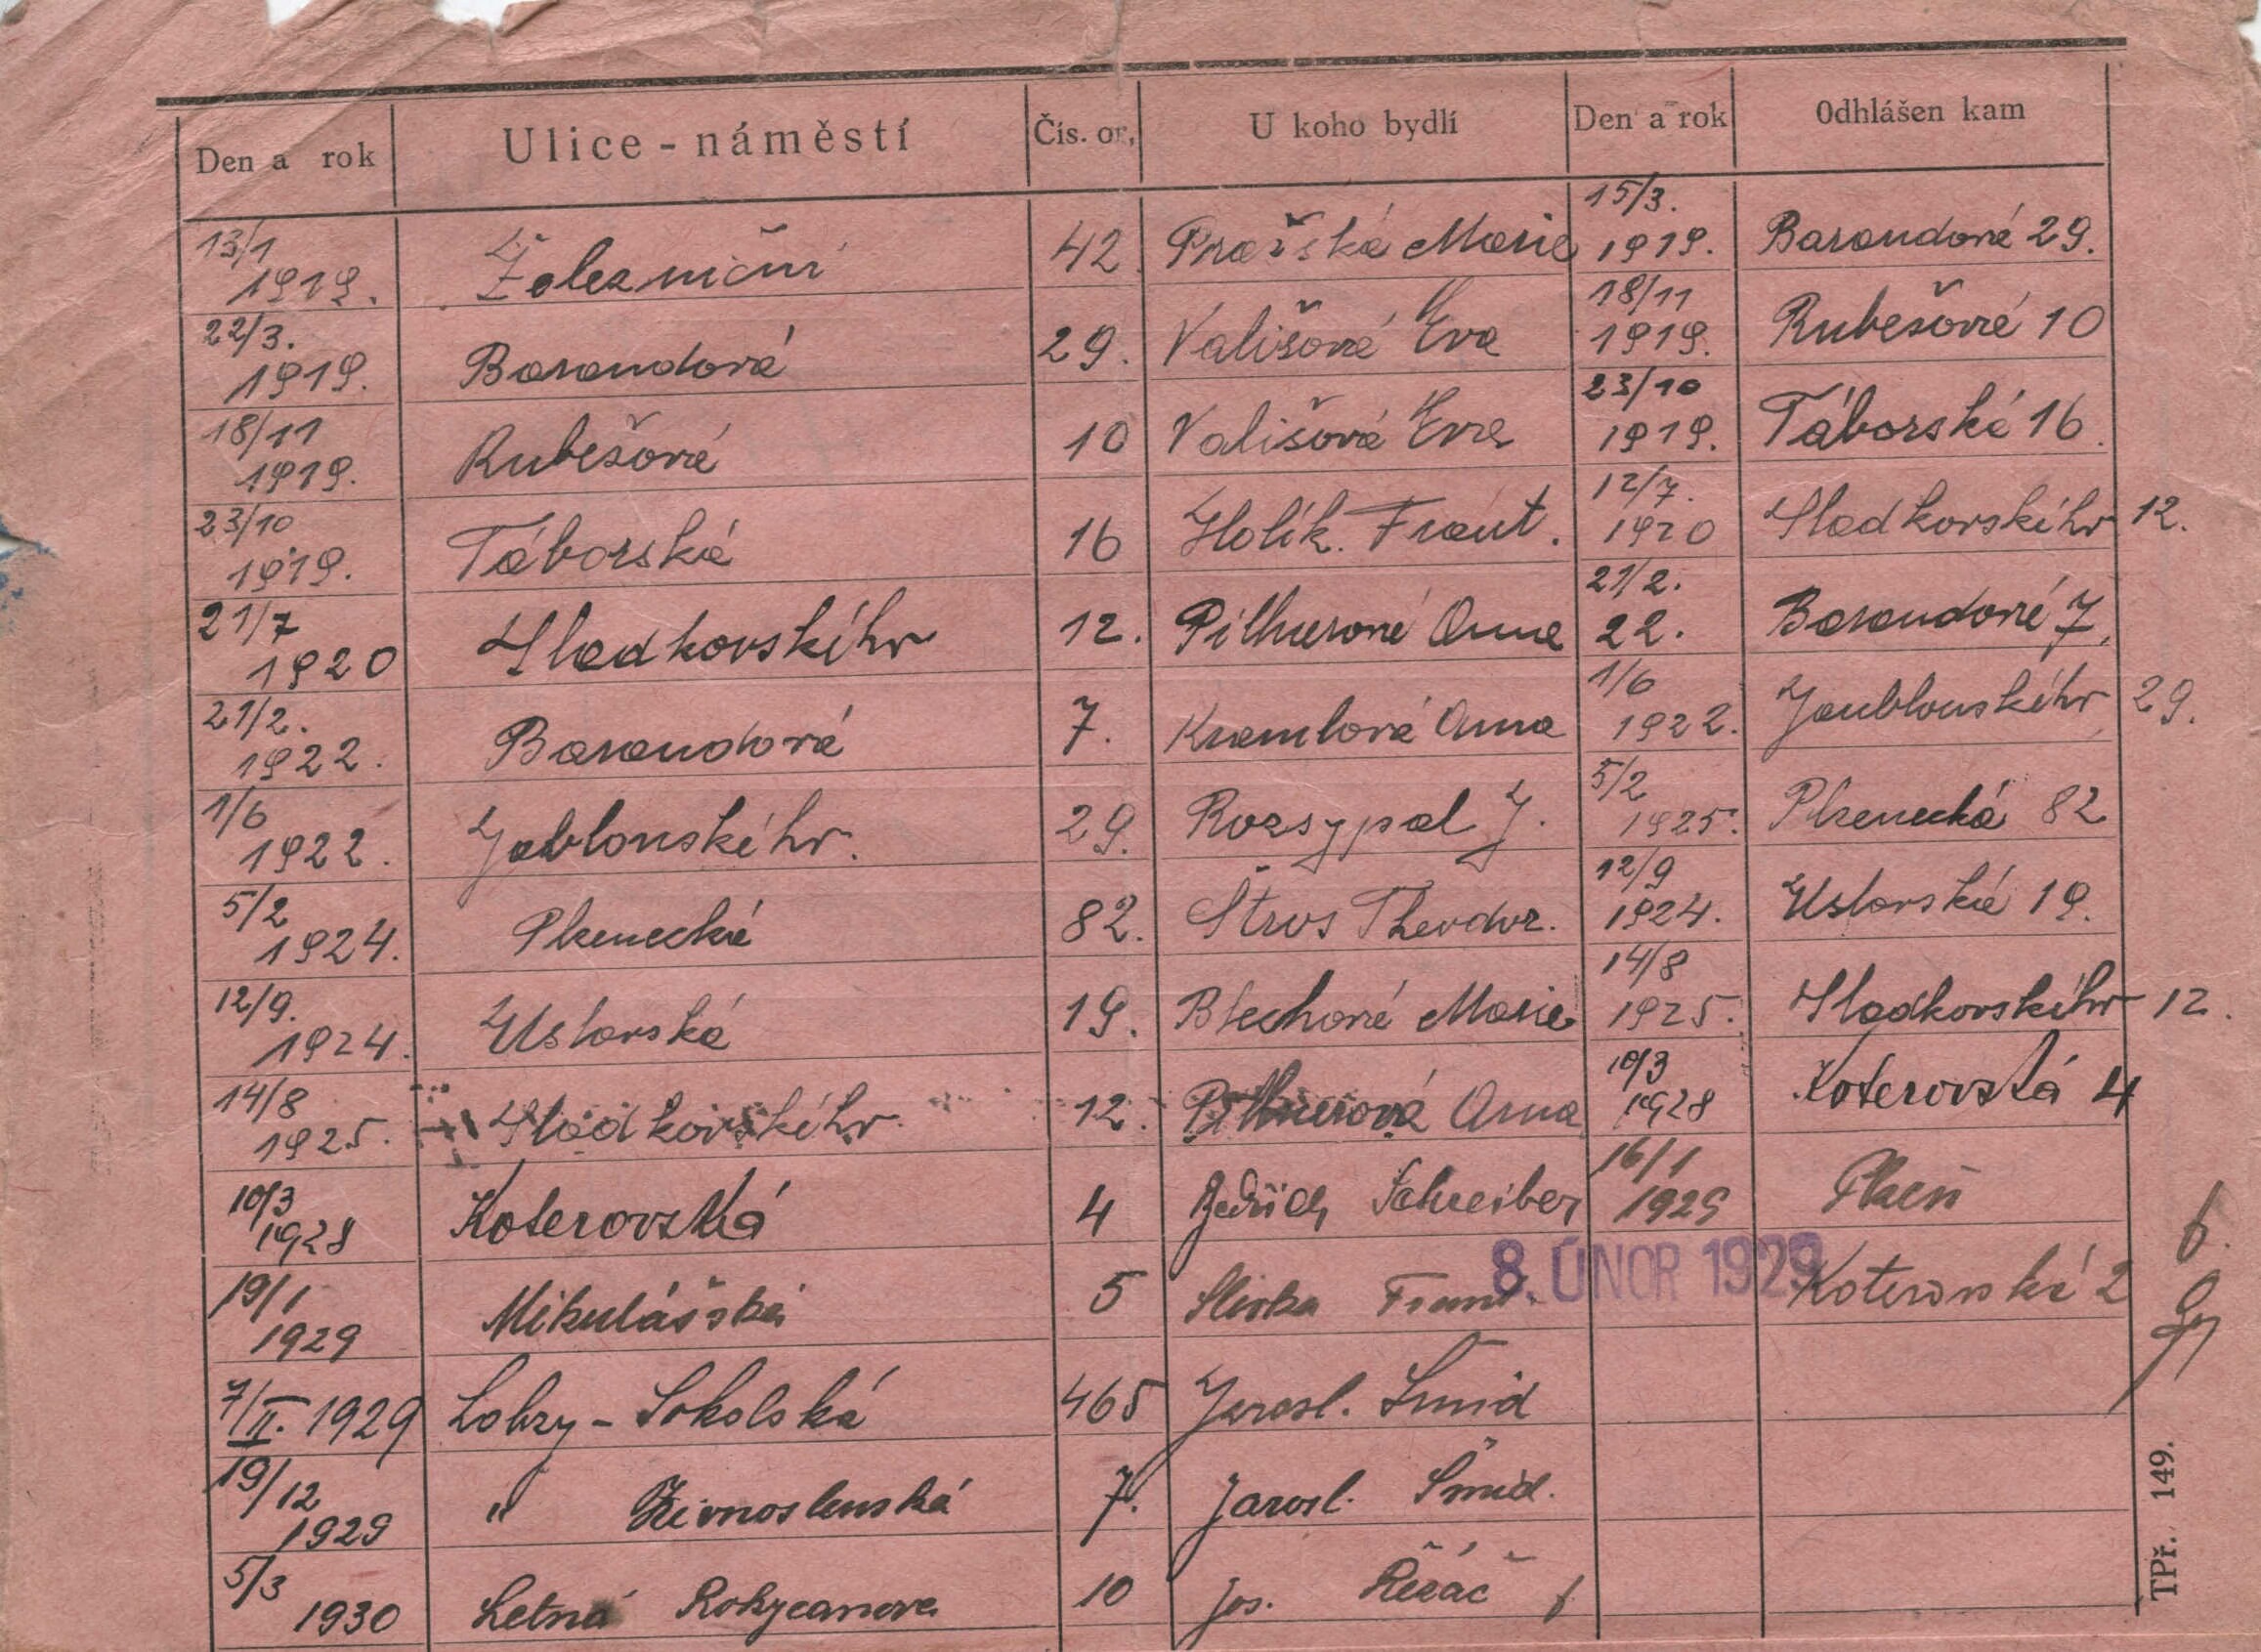 Den a rok Ulice - náměstí Čís. or. U koho bydlí Den a rok Odhlášen kam
13/1 1919. Železniční 42. Pražská Marie 15/3. 1919. Barandová 29.
22/3. 1919. Barandová 29. Vališová Eva 18/11 1919. Rubešová 10
18/11 1919. Rubešová 10 Vališová Eva 23/10 1919. Táborská 16.
23/10 1919. Táborská 16 Holík. Frant. 12/7. 1920 Sladkovskéhr 12.
21/7 1920 Sladkovskéhr 12. Anna 21/2. 22. Barandová 7.
21/2. 1922. Barandová 7. Anna 1/6 1922. Jablonskéhr 29.
1/6 1922. Jablonskéhr. 29. Rozsypal J. 5/2 1925. Plzenecká 82
5/2 1924. Plzenecká 82. Štros Theodor. 12/9 1924. Úslavská 19.
12/9. 1924. Úslavská 19. Blechová Marie 14/8 1925. Sladkovskéhr 12.
14/8 1925. Sladkovskéhr. 12. Anna 10/3 1928 Koterovská 4
10/3 1928 Koterovská 4 Bedřich Schreiber 16/1 1929 Plzeň
19/1 1929 Mikulášská 5 Slivka 8. ÚNOR 1929 Koterovská 2
7/II. 1929 Lobzy - Sokolská 465 Jarosl. Šmid
19/12 1929 " Živnostenská 7. Jarosl. Šmid.
5/3 1930 Letná Rokycanova 10 Jos. Řezáč
TPř. 149.